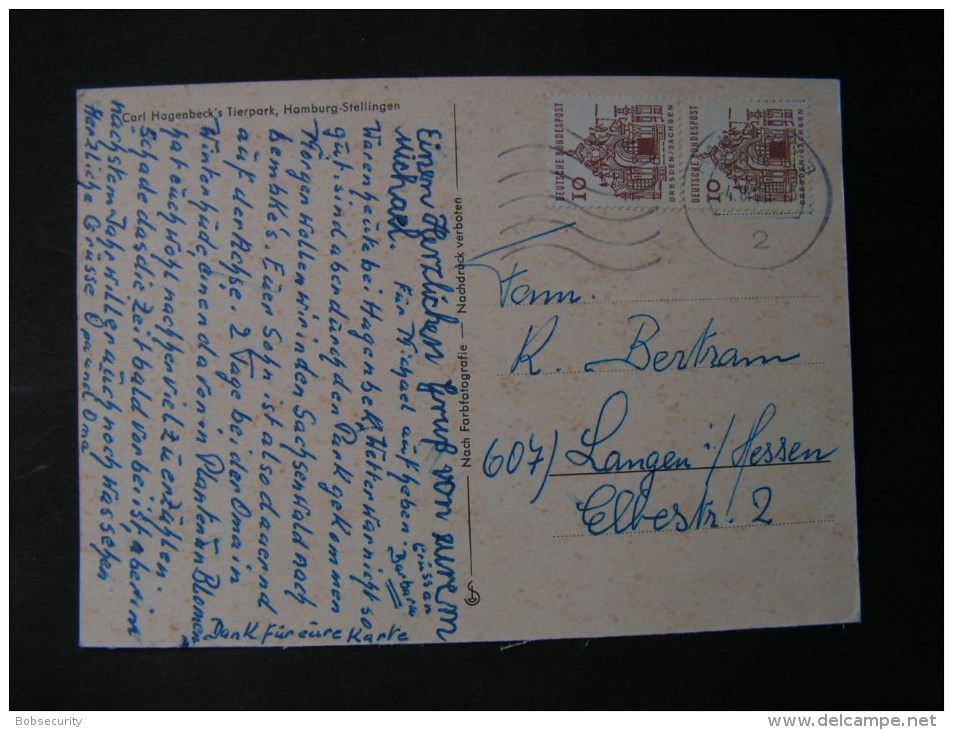 Carl Hagenbeck's Tierpark, Hamburg-Stellingen
Einen Herzlichen Gruß von eurem
Michael.
Für Michael aufheben
Grüssan
Barbara
Waren heute bei Hagenbek, Wetter war nicht so
gut. sind aber durch den Park gekommen
Morgen wollen wir in den Sachsenwald nach
bembke's. Euer Sohn ist also dauernd
auf der Achse. 2 Tage bei der Oma in
Winterhude einen davon in Planten un Blomen
hat euch wohl nachher viel zu erzählen
Schade das die Zeit bald vorbei ist, aber im
nächsten Jahr will er auch noch was sehen
Herzliche Grüsse Opa und Oma
Dank für eure Karte
Nach Farbfotografie — Nachdruck verboten
DEUTSCHE BUNDESPOST
10
DRESDEN/SACHSEN
DEUTSCHE BUNDESPOST
10
DRESDEN/SACHSEN
2
Fam.
R. Bertram
607) Langen i/Hessen
Elbestr. 2
Bobsecurity
www.delcampe.net